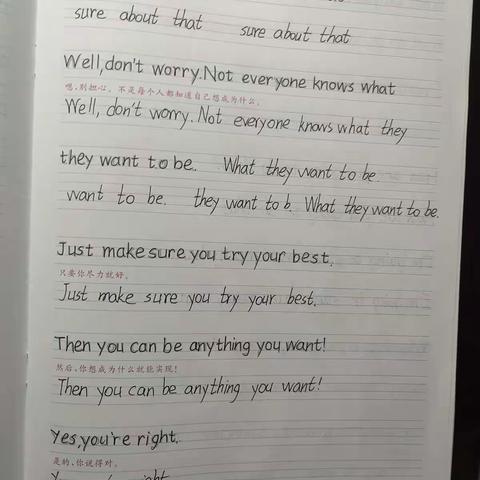 sure about that sure about that
Well,don't worry.Not everyone knows what
嗯,别担心。不是每个人都知道自己想成为什么。
Well, don't worry. Not everyone knows what they
they want to be. What they want to be.
want to be. they want to b. What they want to be.
Just make sure you try your best.
只要你尽力就好。
Just make sure you try your best.
Then you can be anything you want!
然后,你想成为什么就能实现!
Then you can be anything you want!
Yes,you're right.
是的,你说得对。